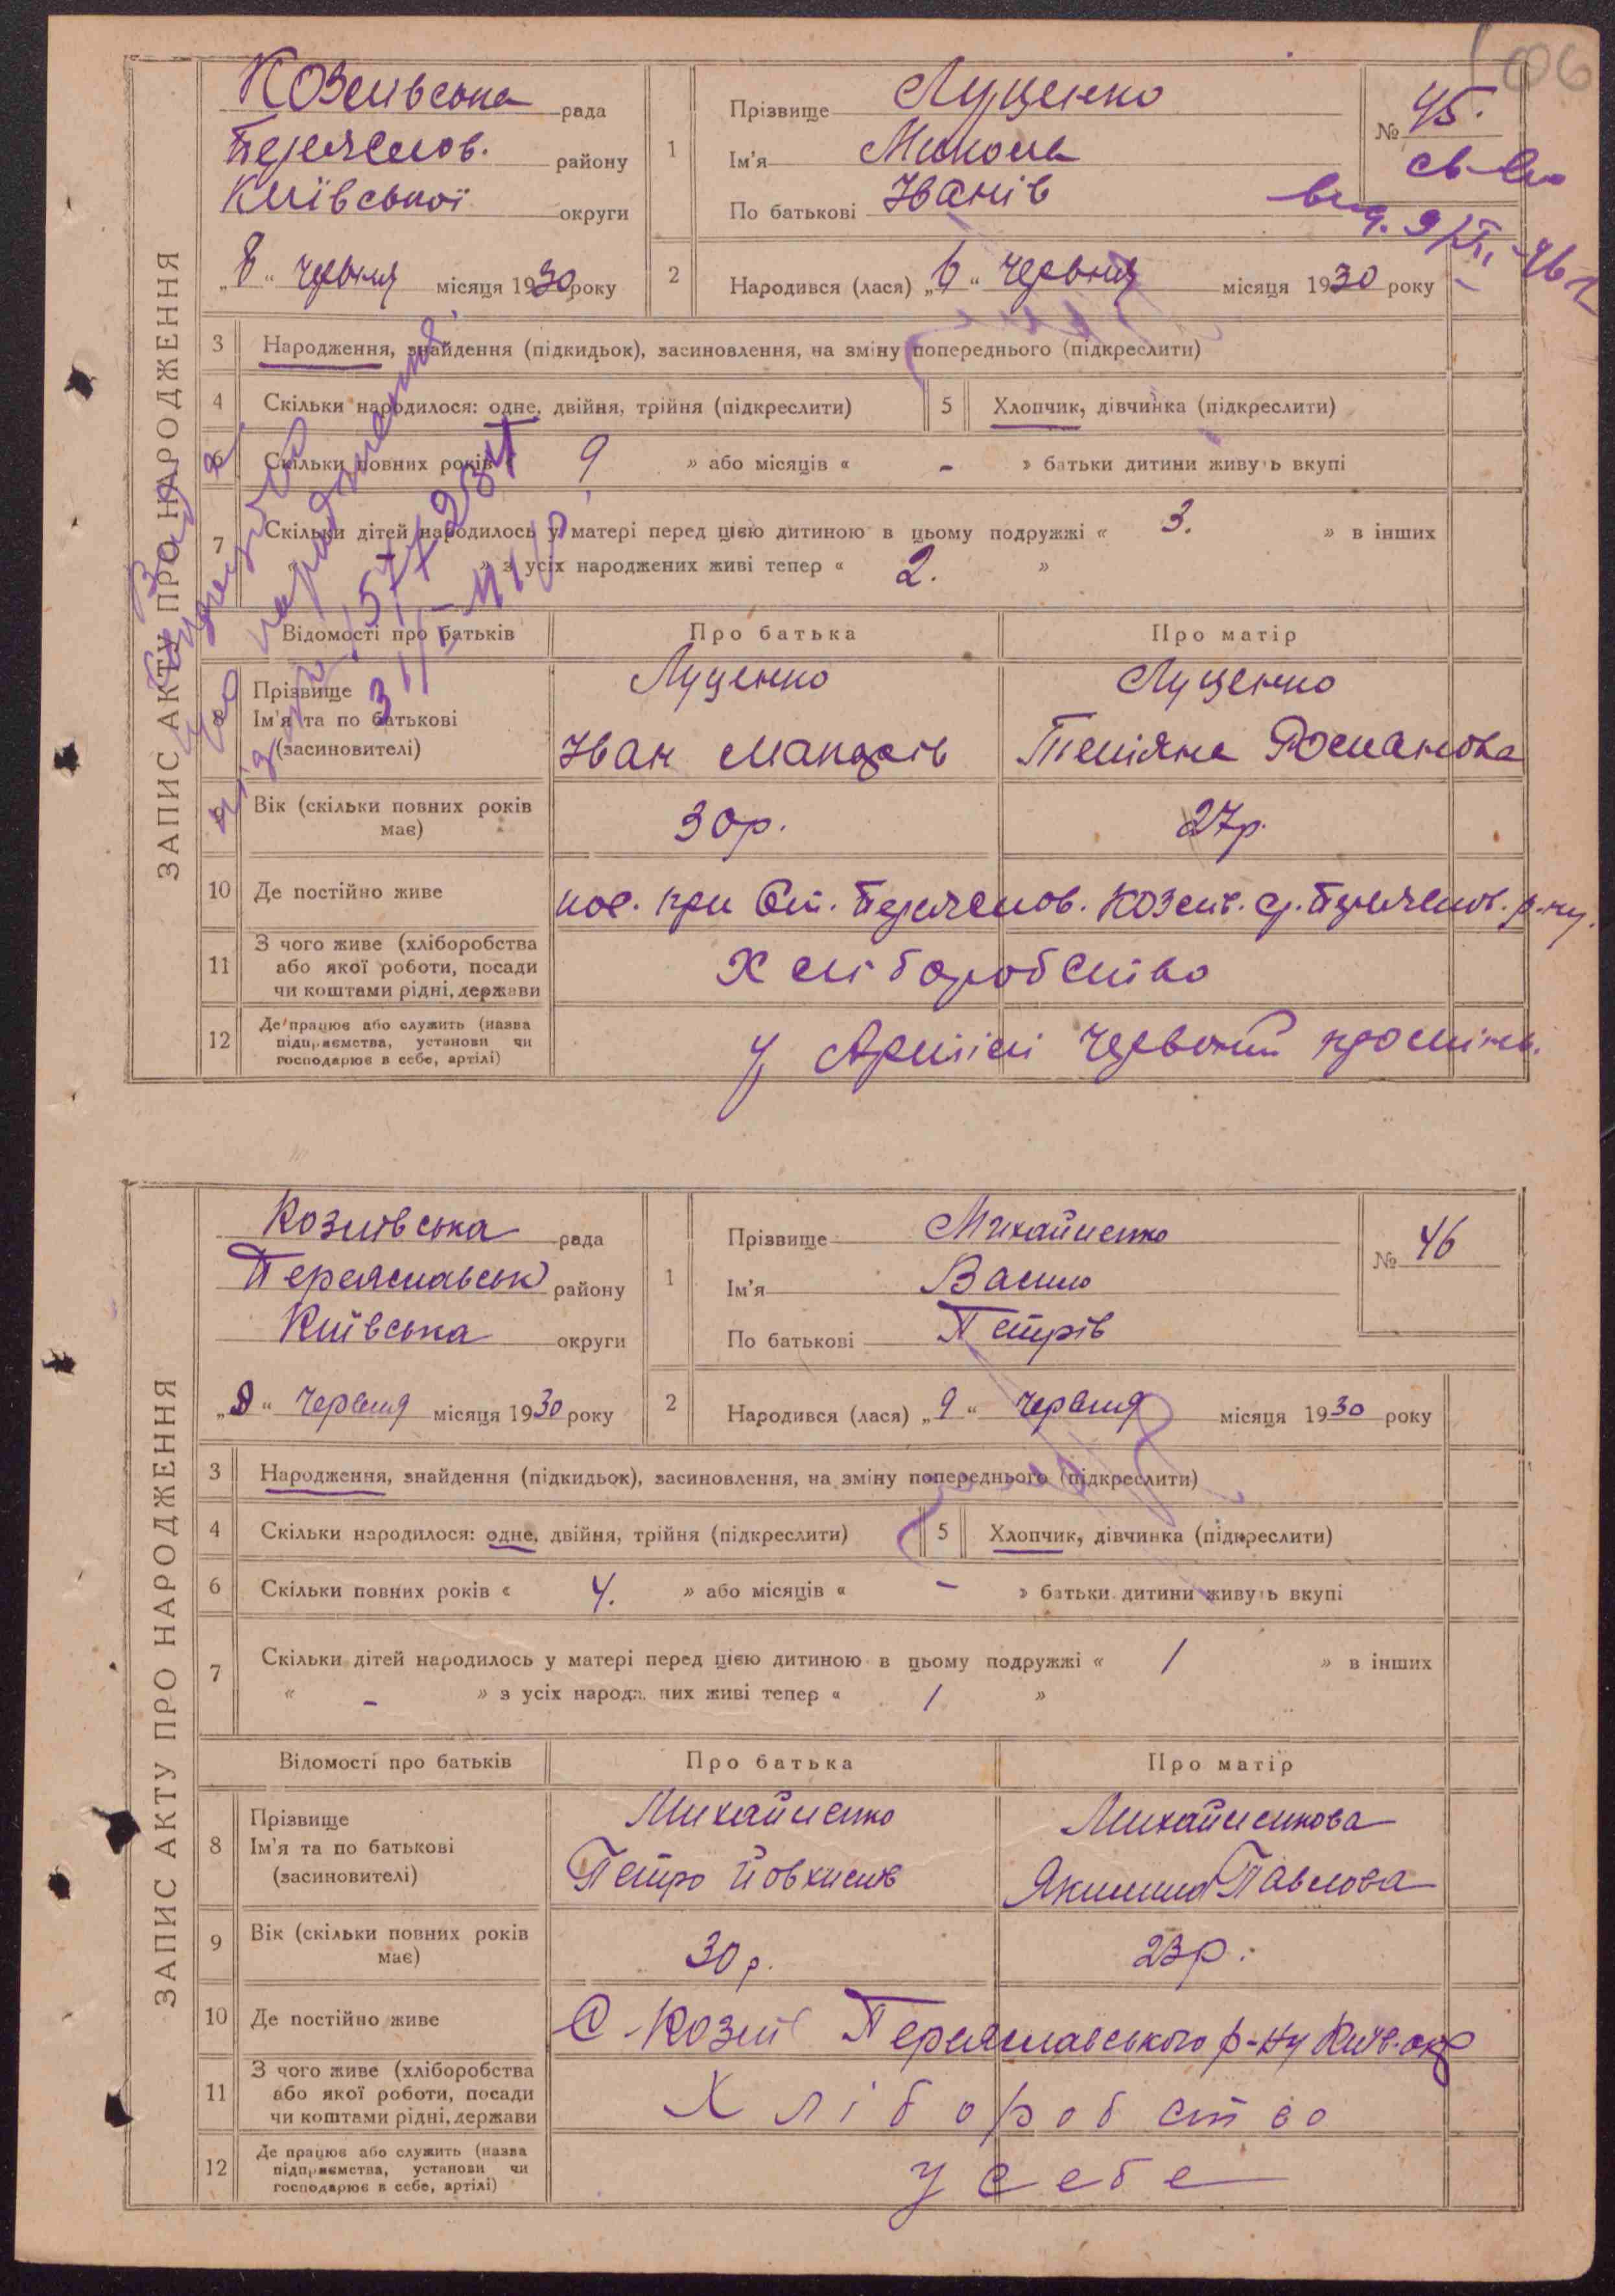 106
ЗАПИС АКТУ ПРО НАРОДЖЕННЯ
Козлівська рада
Переяслов. району
Київської округи
„8“ червня місяця 1930 року
1
Прізвище Луценко
Ім'я Микола
По батькові Іванів
№ 45.
св-во
вид. 9/
2
Народився (лася) „6“ червня місяця 1930 року
3 Народження, знайдення (підкидьок), засиновлення, на зміну попереднього (підкреслити)
4 Скільки народилося: одне, двійня, трійня (підкреслити)
5 Хлопчик, дівчинка (підкреслити)
6 Скільки повних років « 9 » або місяців « - » батьки дитини живуть вкупі
7 Скільки дітей народилось у матері перед цією дитиною в цьому подружжі « 3. » в інших
« » з усіх народжених живі тепер « 2. »
Відомості про батьків Про батька Про матір
8 Прізвище
Ім'я та по батькові
(засиновителі)
Луценко
Іван
Луценко
Тетіяна Романова
9 Вік (скільки повних років має) 30р. 27р.
10 Де постійно живе пос. при ст. Переяслов. Козлів. с.р. Переяслов. р-ну.
11 З чого живе (хліборобства
або якої роботи, посади
чи коштами рідні, держави
Хліборобство
12 Де працює або служить (назва
підприємства, установи чи
господарює в себе, артілі)
у Артілі Червоний
ЗАПИС АКТУ ПРО НАРОДЖЕННЯ
Козлівська рада
Переяславськ району
Київська округи
„8“ червня місяця 1930 року
1
Прізвище Михайленко
Ім'я Василь
По батькові Петрів
№ 46
2
Народився (лася) „9“ червня місяця 1930 року
3 Народження, знайдення (підкидьок), засиновлення, на зміну попереднього (підкреслити)
4 Скільки народилося: одне, двійня, трійня (підкреслити)
5 Хлопчик, дівчинка (підкреслити)
6 Скільки повних років « 4. » або місяців « - » батьки дитини живуть вкупі
7 Скільки дітей народилось у матері перед цією дитиною в цьому подружжі « 1 » в інших
« - » з усіх народжених живі тепер « 1 »
Відомості про батьків Про батька Про матір
8 Прізвище
Ім'я та по батькові
(засиновителі)
Михайленко
Петро
Михайленкова
Павлова
9 Вік (скільки повних років має) 30р. 23р.
10 Де постійно живе С. Козлів Переяславського р-ну Київ. окр
11 З чого живе (хліборобства
або якої роботи, посади
чи коштами рідні, держави
Хліборобство
12 Де працює або служить (назва
підприємства, установи чи
господарює в себе, артілі)
у себе